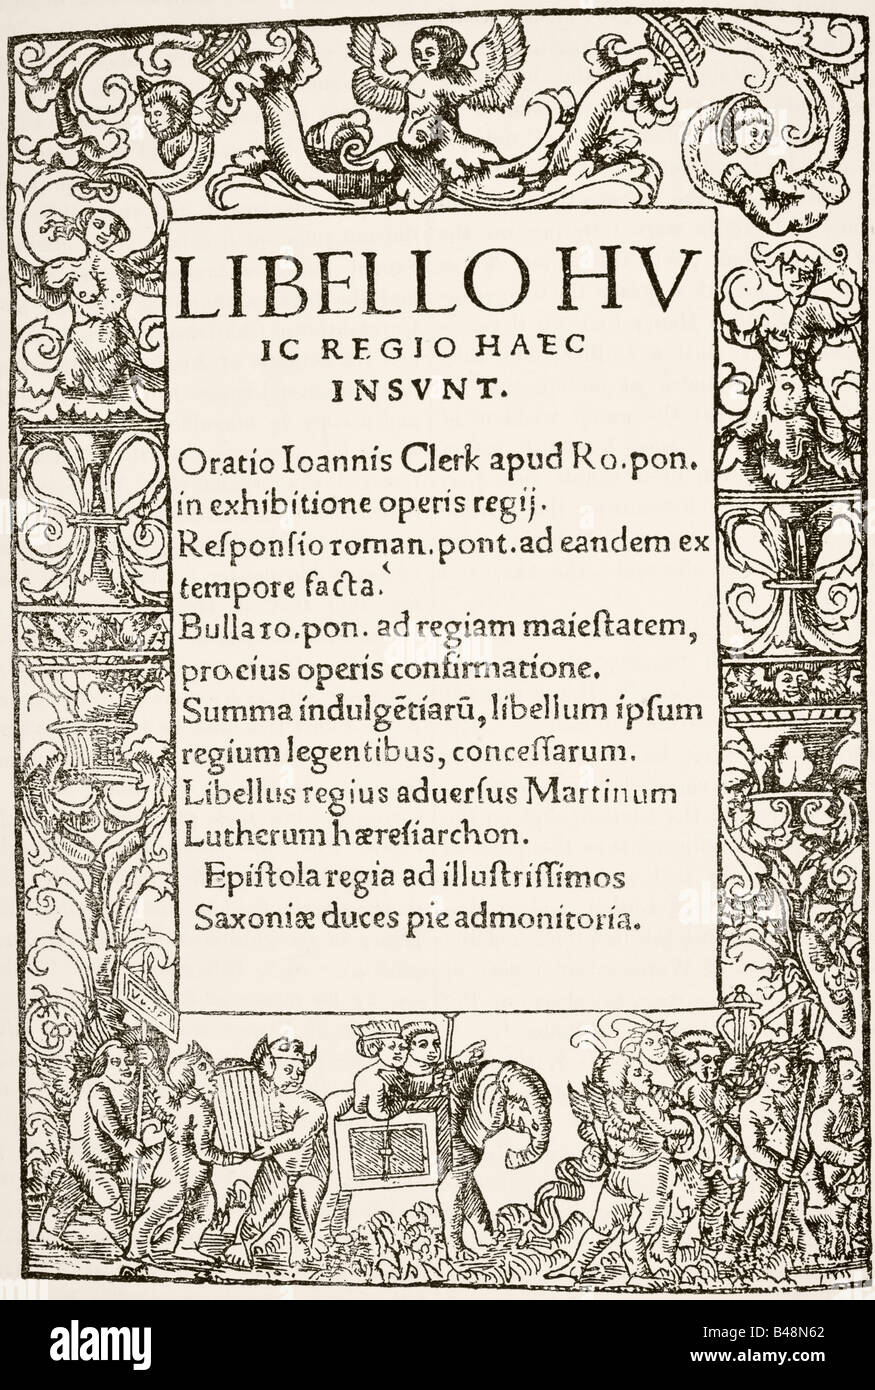 LIBELLO HV
IC REGIO HAEC
INSVNT.
Oratio Ioannis Clerk apud Ro.pon.
in exhibitione operis regij.
Reſponſio roman.pont.ad eandem ex
tempore facta.
Bulla ro.pon. ad regiam maieſtatem,
pro eius operis confirmatione.
Summa indulgẽtiarũ, libellum ipſum
regium legentibus, conceſſarum.
Libellus regius aduerſus Martinum
Lutherum hæreſiarchon.
Epiſtola regia ad illuſtriſſimos
Saxoniæ duces pie admonitoria.
alamy
Image ID: B48N62
www.alamy.com